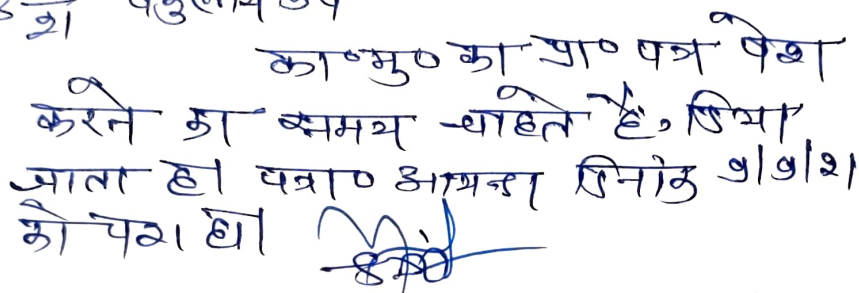 का०मु० का प्रा० पत्र पेश
करने का समय चाहते हैं, दिया
जाता है। पत्रा० आयन्दा दिनांक 9/9/21
को पेश हो।